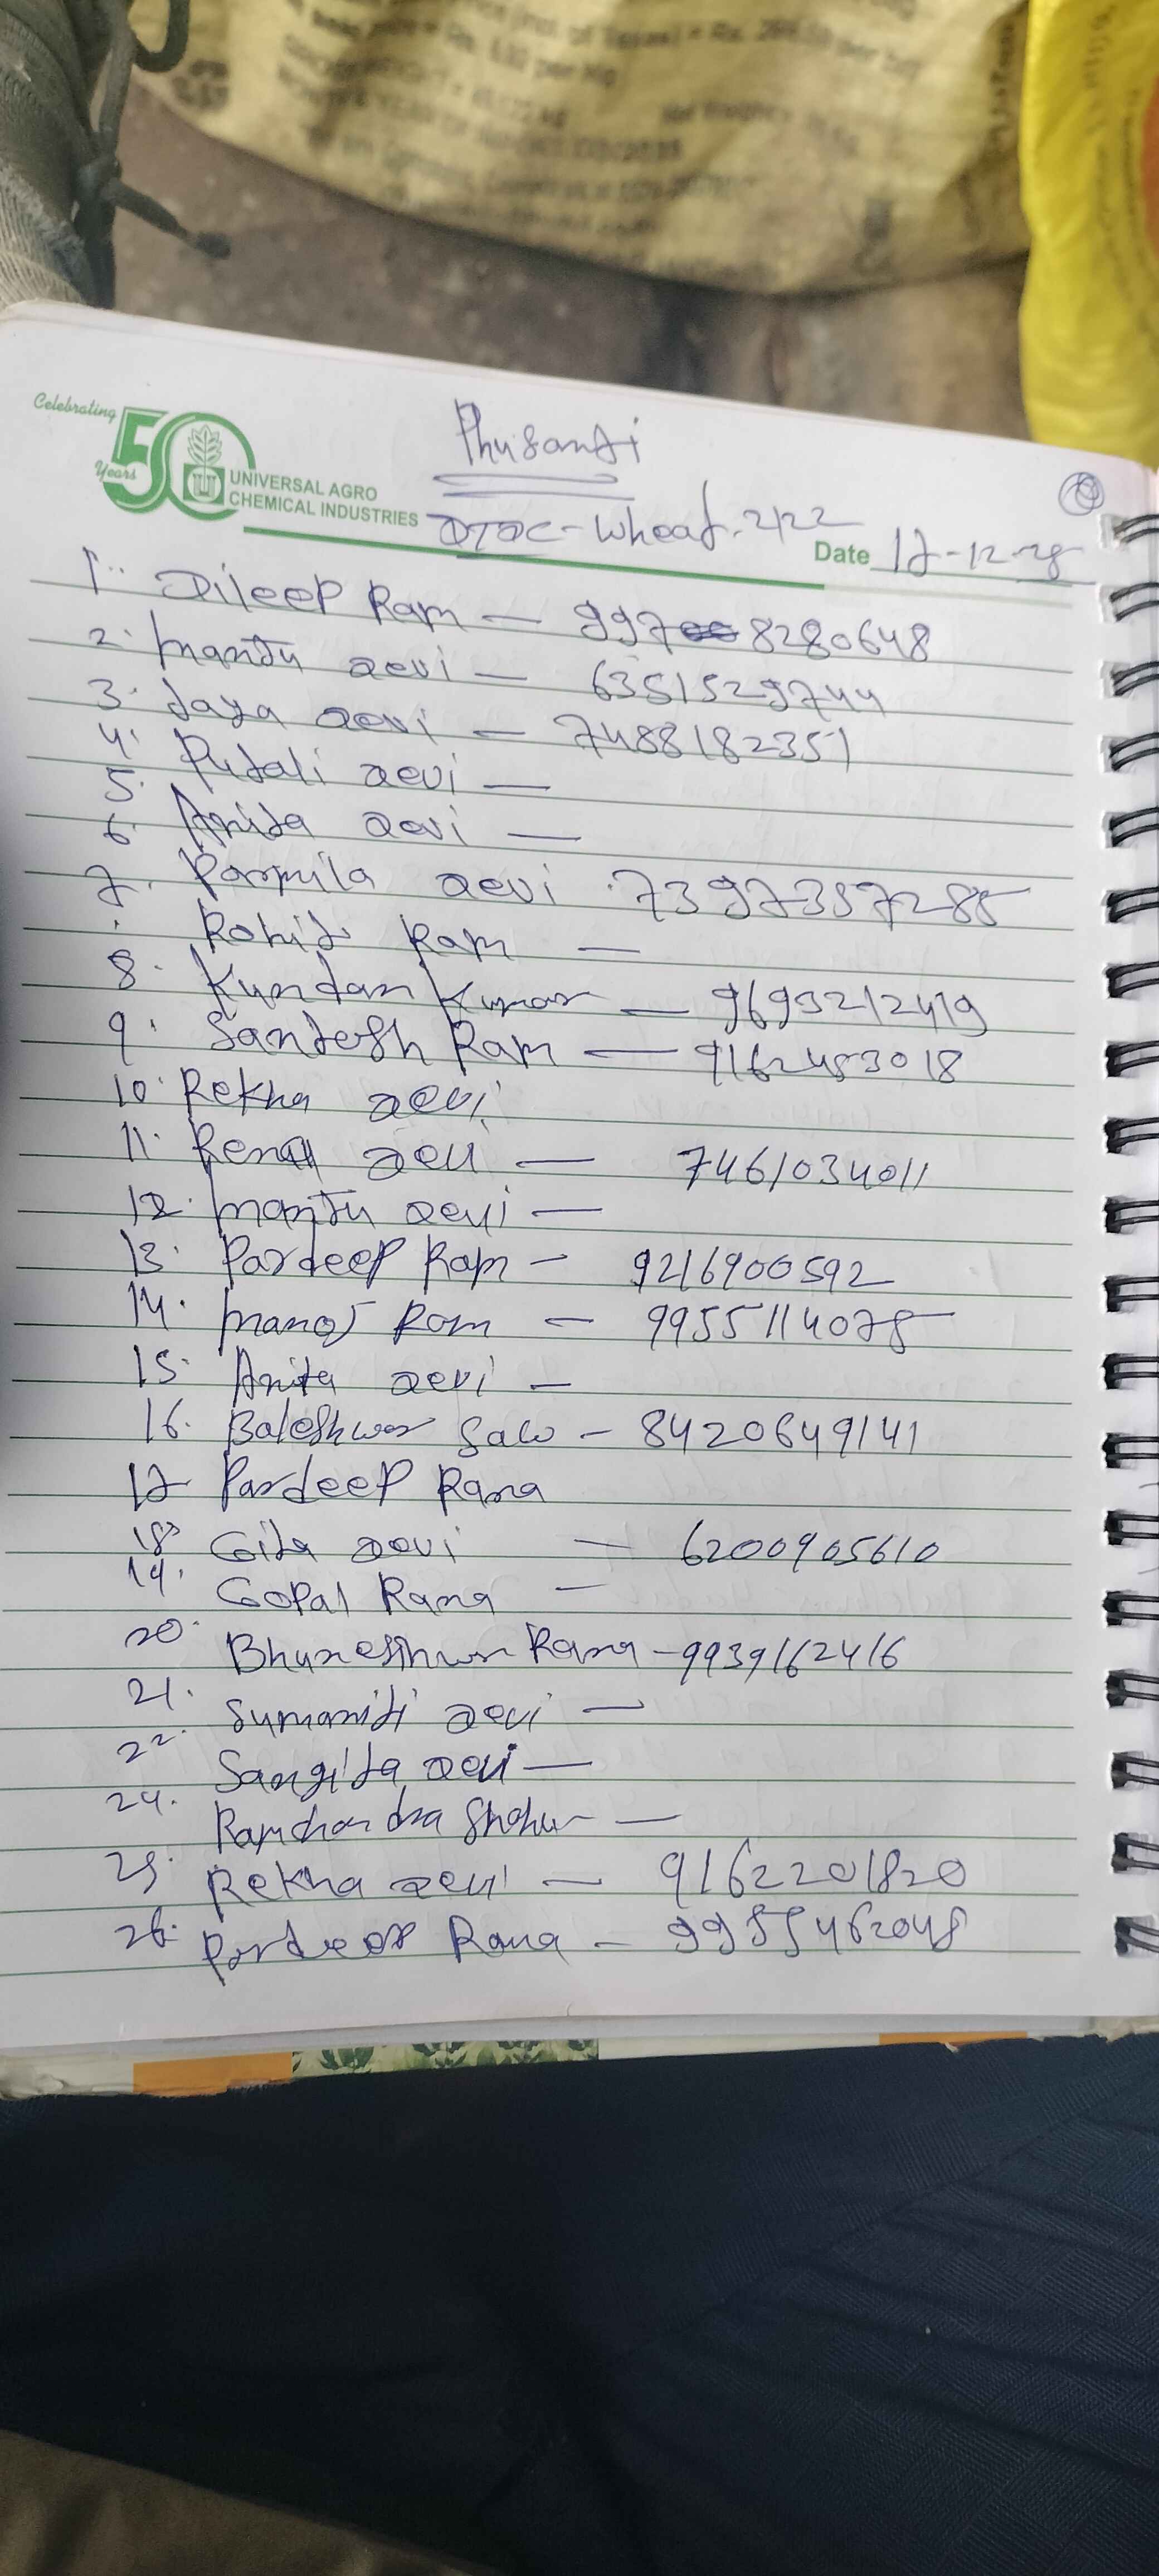 Celebrating
50
Years
UNIVERSAL AGRO
CHEMICAL INDUSTRIES
Phusandi
Wheat - 2122
Date 17-12-25
1. Dileep Ram — 9978280648
2. Mantu Devi — 6351529744
3. Jaya Devi — 7488182351
4. Putali Devi —
5. Anita Devi —
6. Parmila Devi 7397357285
7. Rohit Ram —
8. Kundan Kumar — 9693212419
9. Santosh Ram — 9162483018
10. Rekha Devi
11. Devi — 7461034011
12. Mantu Devi —
13. Pardeep Ram — 9216900592
14. Manoj Ram — 9955114078
15. Anita Devi —
16. Baleshwar Saw — 8420649141
17 Pardeep Rana
18 Gita Devi — 6200905610
19. Gopal Rana —
20. Bhuneshwar Rana — 9939162416
21. Sumariti Devi —
22. Sangita Devi —
24. Ramchandra —
25. Rekha Devi — 9162201820
26. Pardeep Rana — 9955462048